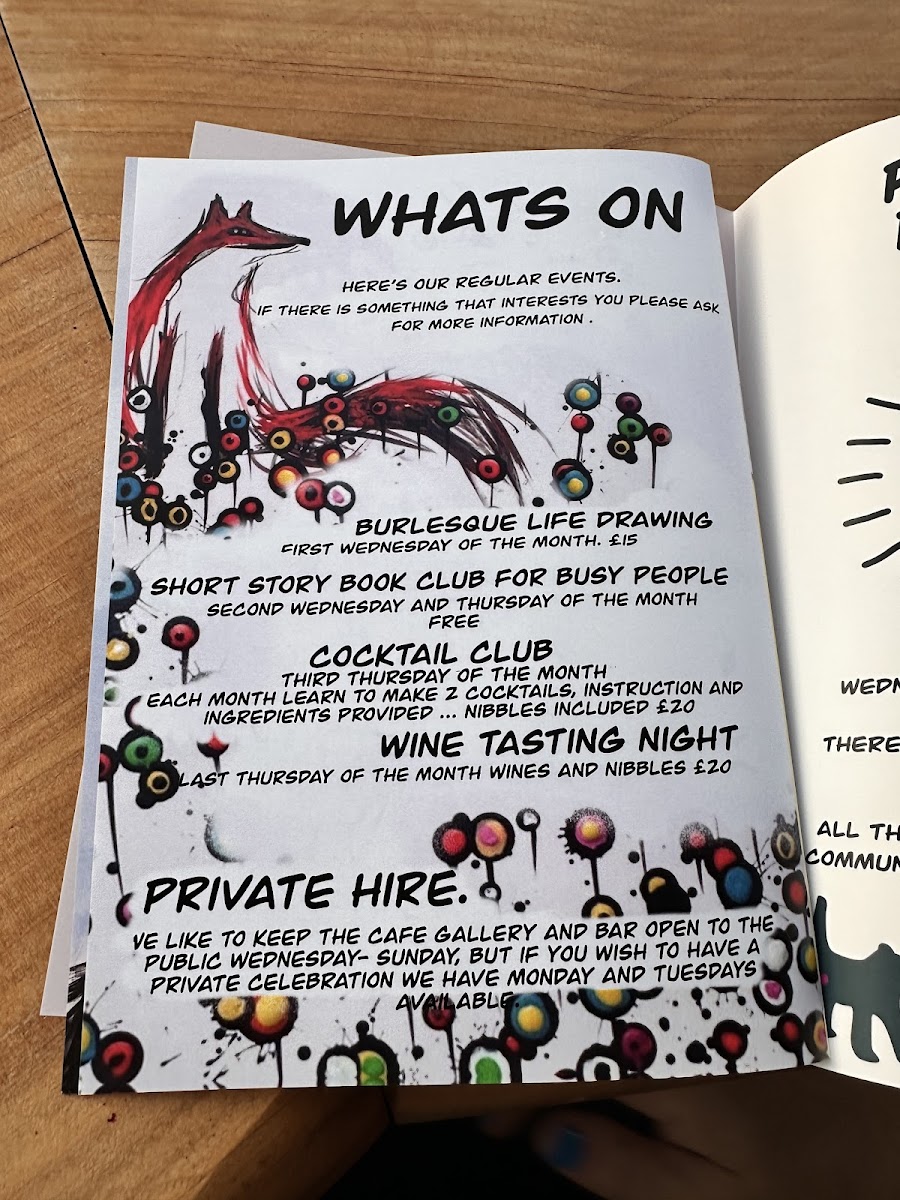 WHATS ON
HERE'S OUR REGULAR EVENTS.
IF THERE IS SOMETHING THAT INTERESTS YOU PLEASE ASK
FOR MORE INFORMATION .
BURLESQUE LIFE DRAWING
FIRST WEDNESDAY OF THE MONTH. £15
SHORT STORY BOOK CLUB FOR BUSY PEOPLE
SECOND WEDNESDAY AND THURSDAY OF THE MONTH
FREE
COCKTAIL CLUB
THIRD THURSDAY OF THE MONTH
EACH MONTH LEARN TO MAKE 2 COCKTAILS, INSTRUCTION AND
INGREDIENTS PROVIDED ... NIBBLES INCLUDED £20
WINE TASTING NIGHT
LAST THURSDAY OF THE MONTH WINES AND NIBBLES £20
PRIVATE HIRE.
WE LIKE TO KEEP THE CAFE GALLERY AND BAR OPEN TO THE
PUBLIC WEDNESDAY- SUNDAY, BUT IF YOU WISH TO HAVE A
PRIVATE CELEBRATION WE HAVE MONDAY AND TUESDAYS
AVAILABLE.
WEDN
THERE
ALL TH
COMMUN